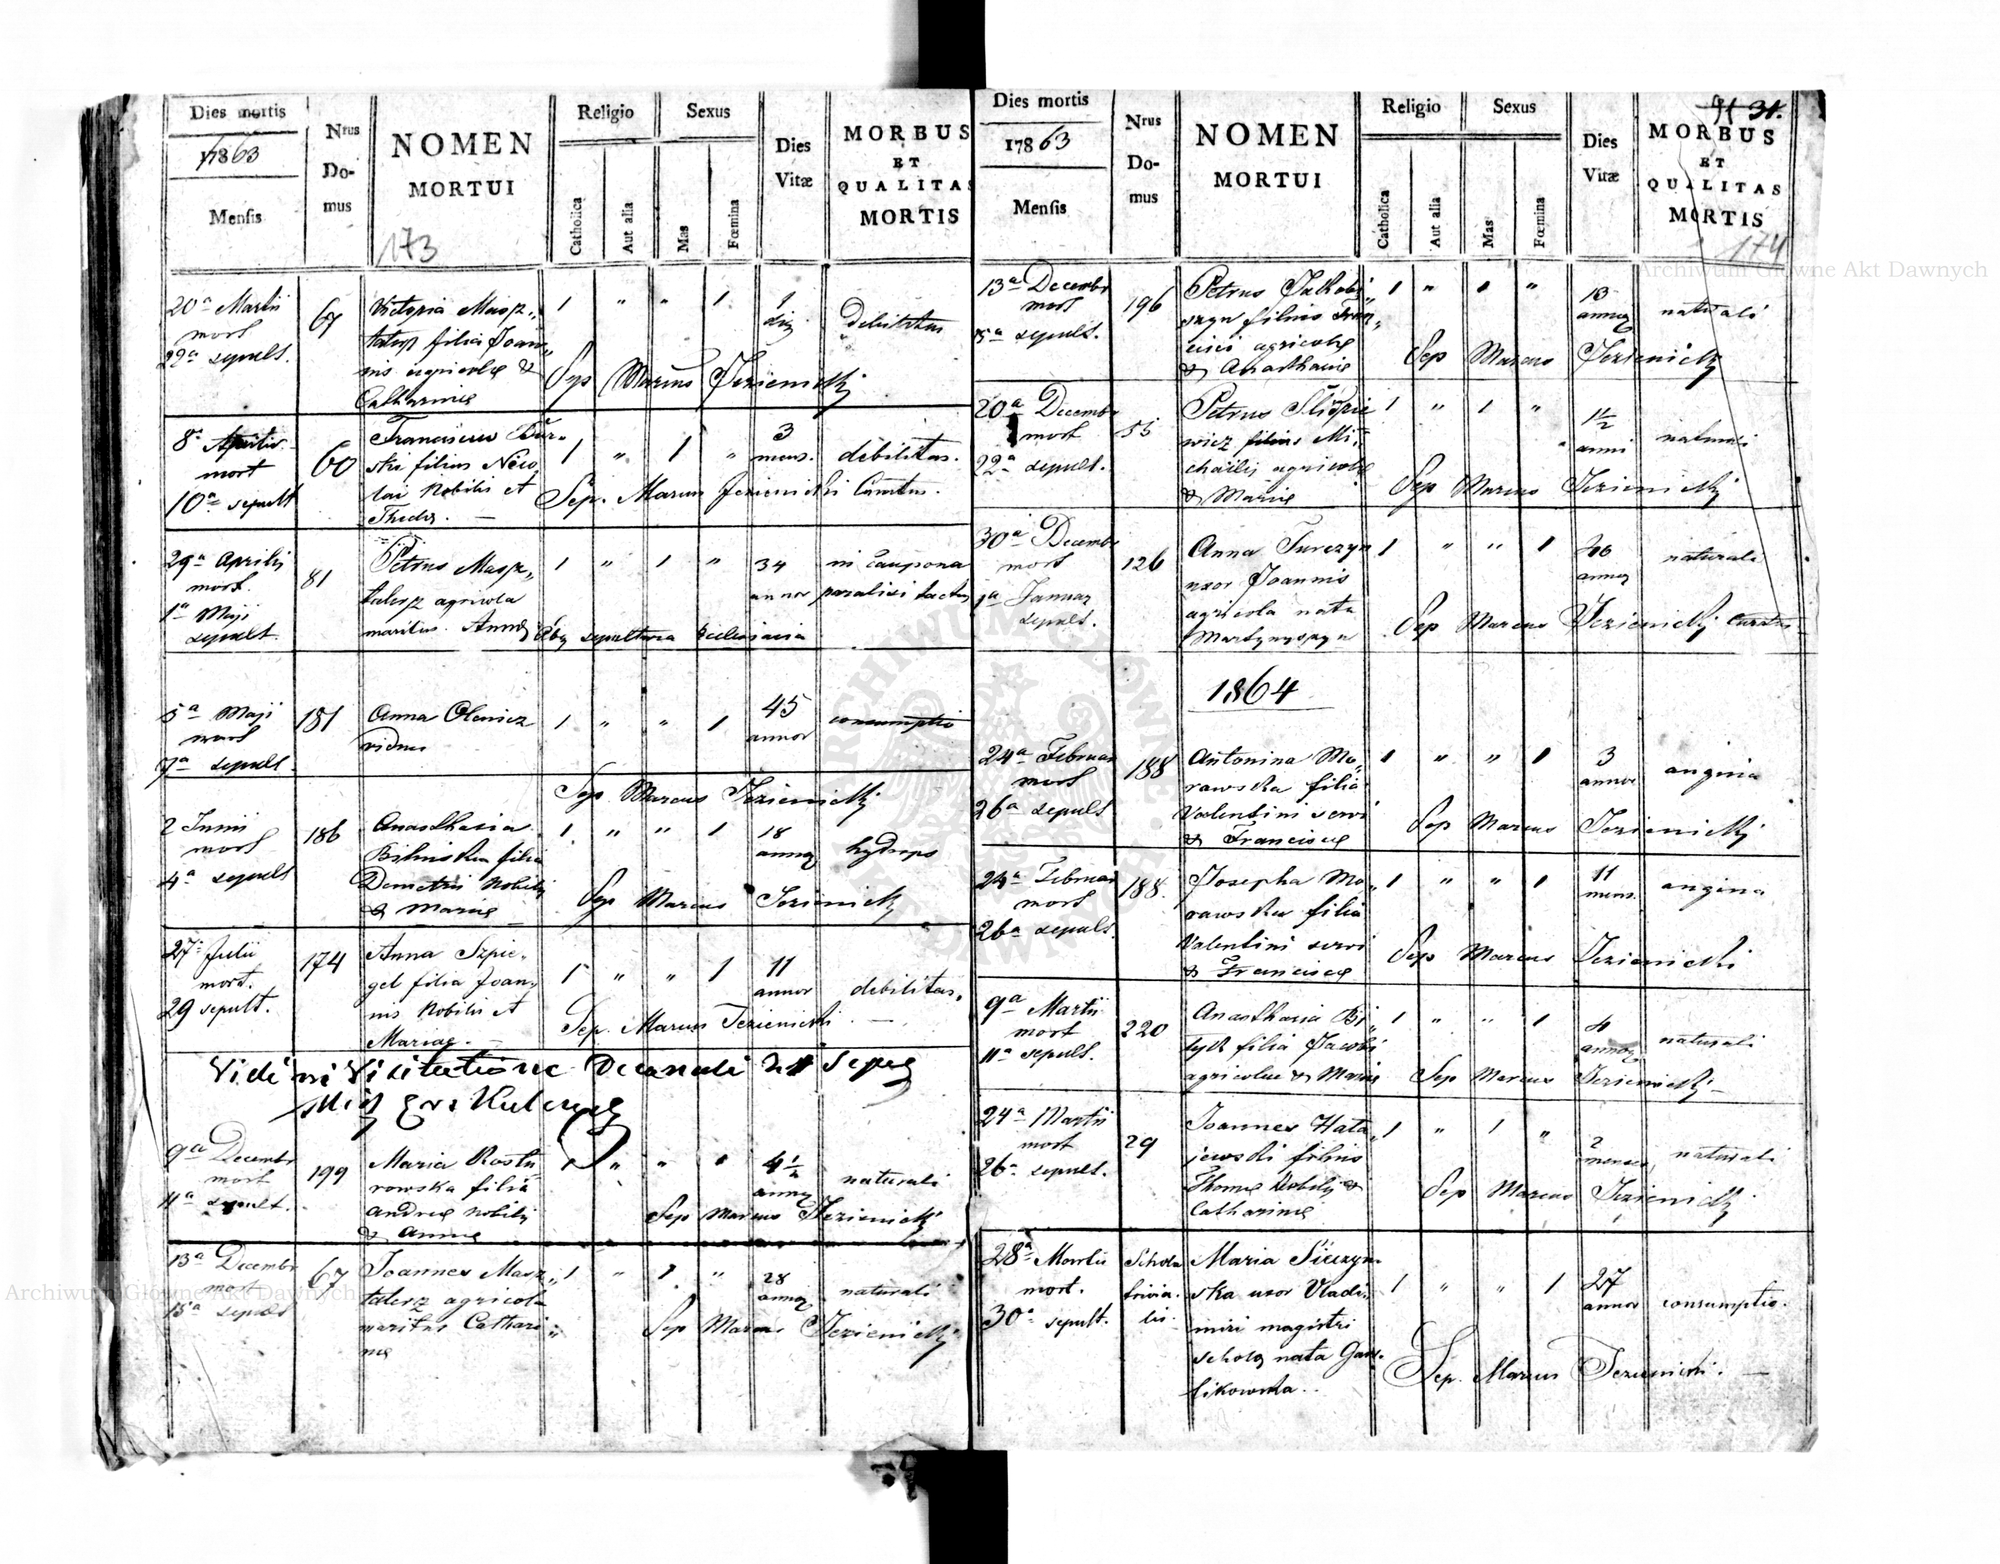 Dies mortis
1863
Mensis
Nrus
Do-
mus
NOMEN
MORTUI
173
Religio
Catholica
Aut alia
Sexus
Mas
Fœmina
Dies
Vitæ
MORBUS
ET
QUALITAS
MORTIS
20a Martii
mort
22a sepult.
67
Victoria Masz„
talerz filia Joan„
nis agricolæ &
Catharinæ
1 „ „ 1
1
die
debilitas
Sep Marcus Jezienicky
8a Aprilis
mort
10a sepult
60
Franciscus Bur-
ski filius Nico
lai Nobilis et
Theclæ. —
1 „ 1 „
3
mens.
debilitas.
Sep. Marcus Jezienicki Curatus.
29a Aprilis
mort.
1a Maji
sepult.
81
Petrus Masz„
talerz agricola
maritus Annæ
1 „ 1 „
34
annor
in caupona
paralisi tactus
Abq sepultura
5a Maji
mort
7a sepult.
181
Anna Olenicz
vidua
1 „ „ 1
45
annor
consumptio
Sep Marcus Jezienicky
2 Junii
mort
4a sepult
186
Anasthasia
Bilinska filia
Demetrii Nobilis
& Mariæ —
1 „ „ 1
18
annor
hydrops
Sep Marcus Jezienicky
27a Julii
mort.
29 sepult.
174
Anna Szpie-
gel filia Joan„
nis Nobilis et
Mariæ. —
1 „ „ 1
11
annor
debilitas.
Sep. Marcus Jezienicki —
Vidi in Visitatione Decanali
9a Decembr
mort
11a sepult.
199
Maria Rostu
rowska filia
Andreæ nobilis
& Annæ
„ „
4 1/2
annor
naturali
Sep Marcus Jezienicki
13a Decembr
mort
15a sepult
67
Joannes Masz„
talerz agricola
maritus Cathari„
næ
1 „ 1 „
28
annor
naturali
Sep Marcus Jezienicky
Dies mortis
1863
Mensis
Nrus
Do-
mus
NOMEN
MORTUI
Religio
Catholica
Aut alia
Sexus
Mas
Fœmina
Dies
Vitæ
31.
MORBUS
ET
QUALITAS
MORTIS
174
13a Decembr
mort
15a sepult.
196
Petrus Jakobi„
szyn filius Fran„
cisci agricolæ
& Anasthasiæ
1 „ 1 „
13
annor
naturali
Sep Marcus Jezienicky
20a Decembr
mort
22a sepult.
55
wicz filius Mi„
chailis agricolæ
& Mariæ
1 „ 1 „
1 1/2
anni
naturali
Sep Marcus Jezienicky
30a Decembr
mort
1a Januar
sepult.
126
Anna Turczyn
uxor Joannis
agricola nata
Martynyszyn
1 „ „ 1
annor
naturali
Sep Marcus Jezienicky Curatus —
1864
24a Februar
mort
26a sepult
188
Antonina Mo„
rawska filia
Valentini servi
& Franciscæ
1 „ „ 1
3
annor
angina
Sep Marcus Jezienicky
24a Februar
mort
26a sepult.
188.
Josepha Mo„
rawska filia
Valentini servi
& Franciscæ
1 „ „ 1
11
mens.
angina
Sep Marcus Jezienicki
9a Martii
mort
11a sepult.
220
Anasthasia Bi„
lyk filia Jacobi
agricolae & Mariæ
1 „ „ 1
4
annor
naturali
Sep Marcus Jezienicki —
24a Martii
mort
26a sepult.
29
Joannes Hata„
jewski filius
Thomæ Nobilis &
Catharinæ
1 „ 1 „
2
menses
naturali
Sep Marcus Jezienicky
28a Martii
mort.
30a sepult.
Schola
trivia-
lis.
Maria Siczyn
ska uxor Vladi-
miri magistri
scholæ nata Gaw-
likowska.
1 „ „ 1
27
annor
consumptio.
Sep. Marcus Jezienicki. —
Archiwum Główne Akt Dawnych
Archiwum Główne Akt Dawnych
ARCHIWUM GŁÓWNE AKT DAWNYCH